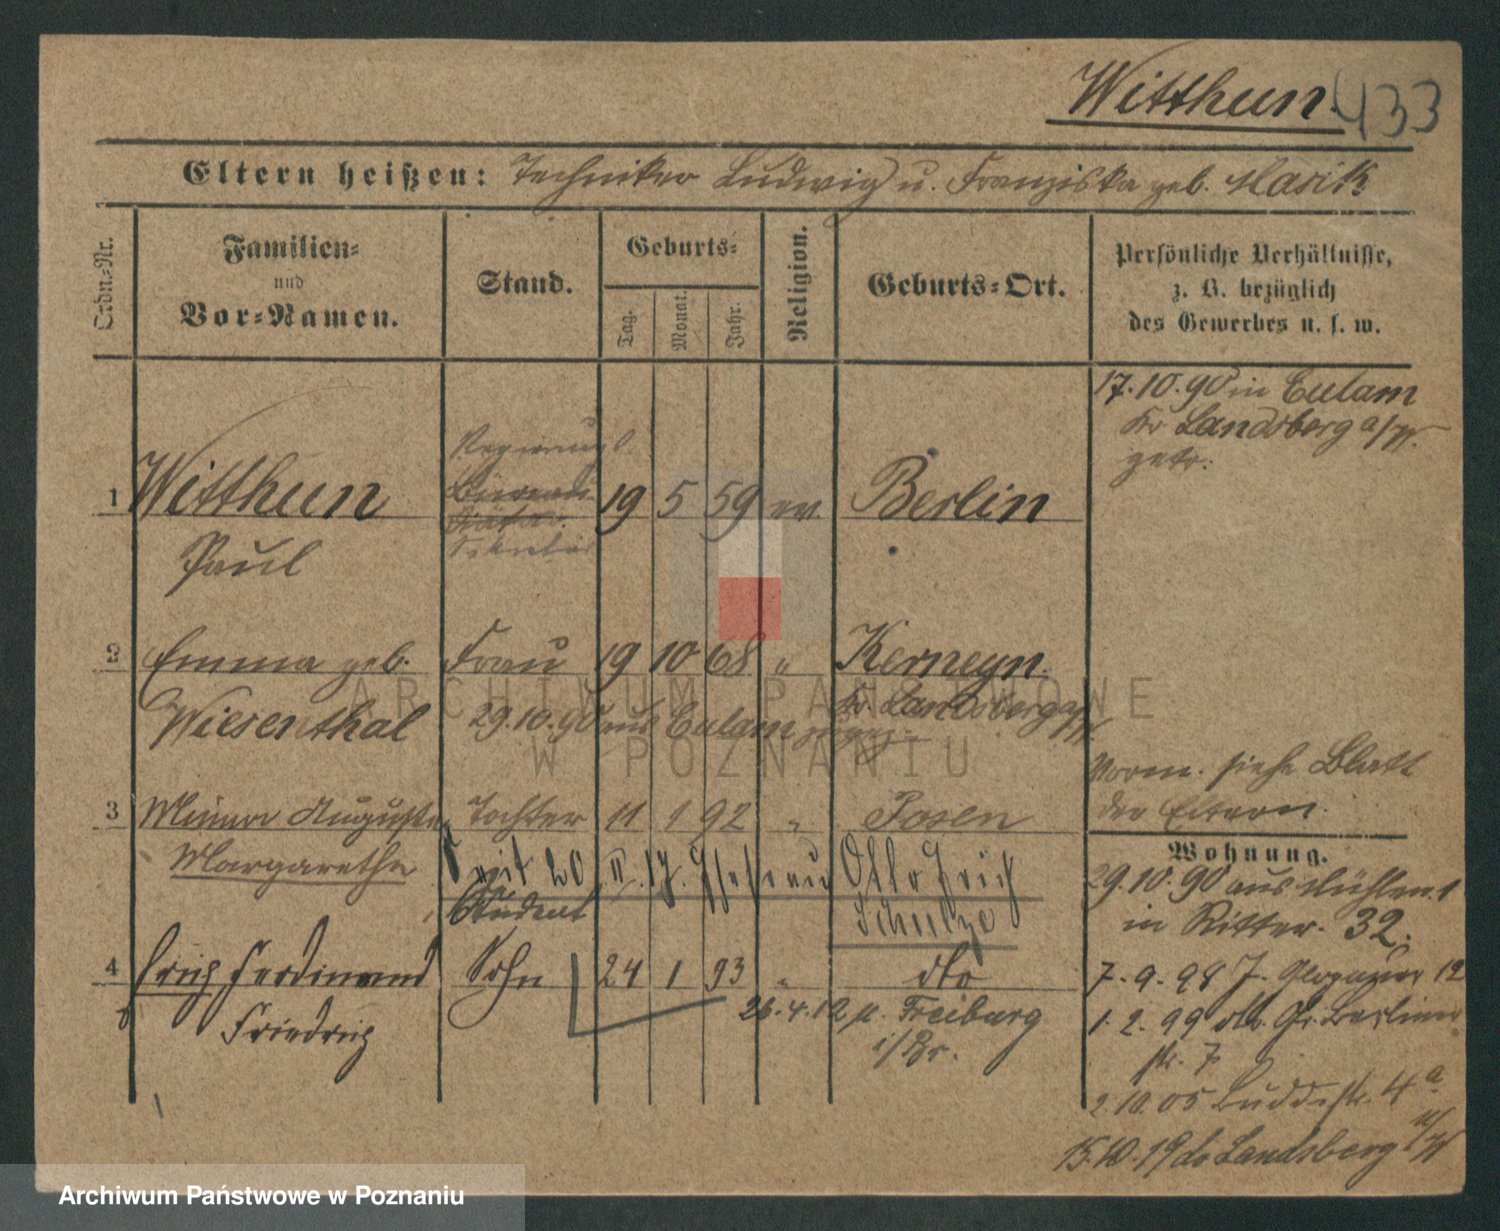 Witthun. 433
Eltern heißen: Techniker Ludwig u. Franziska geb. Masik
Ordn.-Nr.
Familien-
und
Vor-Namen.
Stand.
Geburts-
Tag.
Monat.
Jahr.
Religion.
Geburts-Ort.
Persönliche Verhältnisse,
z. B. bezüglich
des Gewerbes u. s. w.
17.10.90 in Eulam
Kr Landsberg a/W.
getr.
Regierungs
Bureau
1 Witthun 19 5 59 ev. Berlin
Diätar.
Sekretär
Paul
2 Emma geb. Frau 19 10 68 " Kerneyn.
Wiesenthal 29.10.90 aus Eulam
Kr. Landsberg a/W.
Vorm. siehe Blatt
der Eltern.
3 Minna Auguste Tochter 11 1 92 " Posen
Margarethe
seit 20. II. 17. Ehefrau Otto Erich
Schultze
Student
4 Erich Ferdinand Sohn 24 1 93 " dto
Friedrich
26.4.12 n. Freiburg
i/Br.
Wohnung.
29.10.90 aus Mühlen. 1
in Ritter. 32.
7.9.98 J. Glogauer 12
1.2.99 Gr. Berliner
str. 7
2.10.05 Buddestr. 4a
15.10.19 do Landsberg a/W
ARCHIWUM PAŃSTWOWE
W POZNANIU
Archiwum Państwowe w Poznaniu